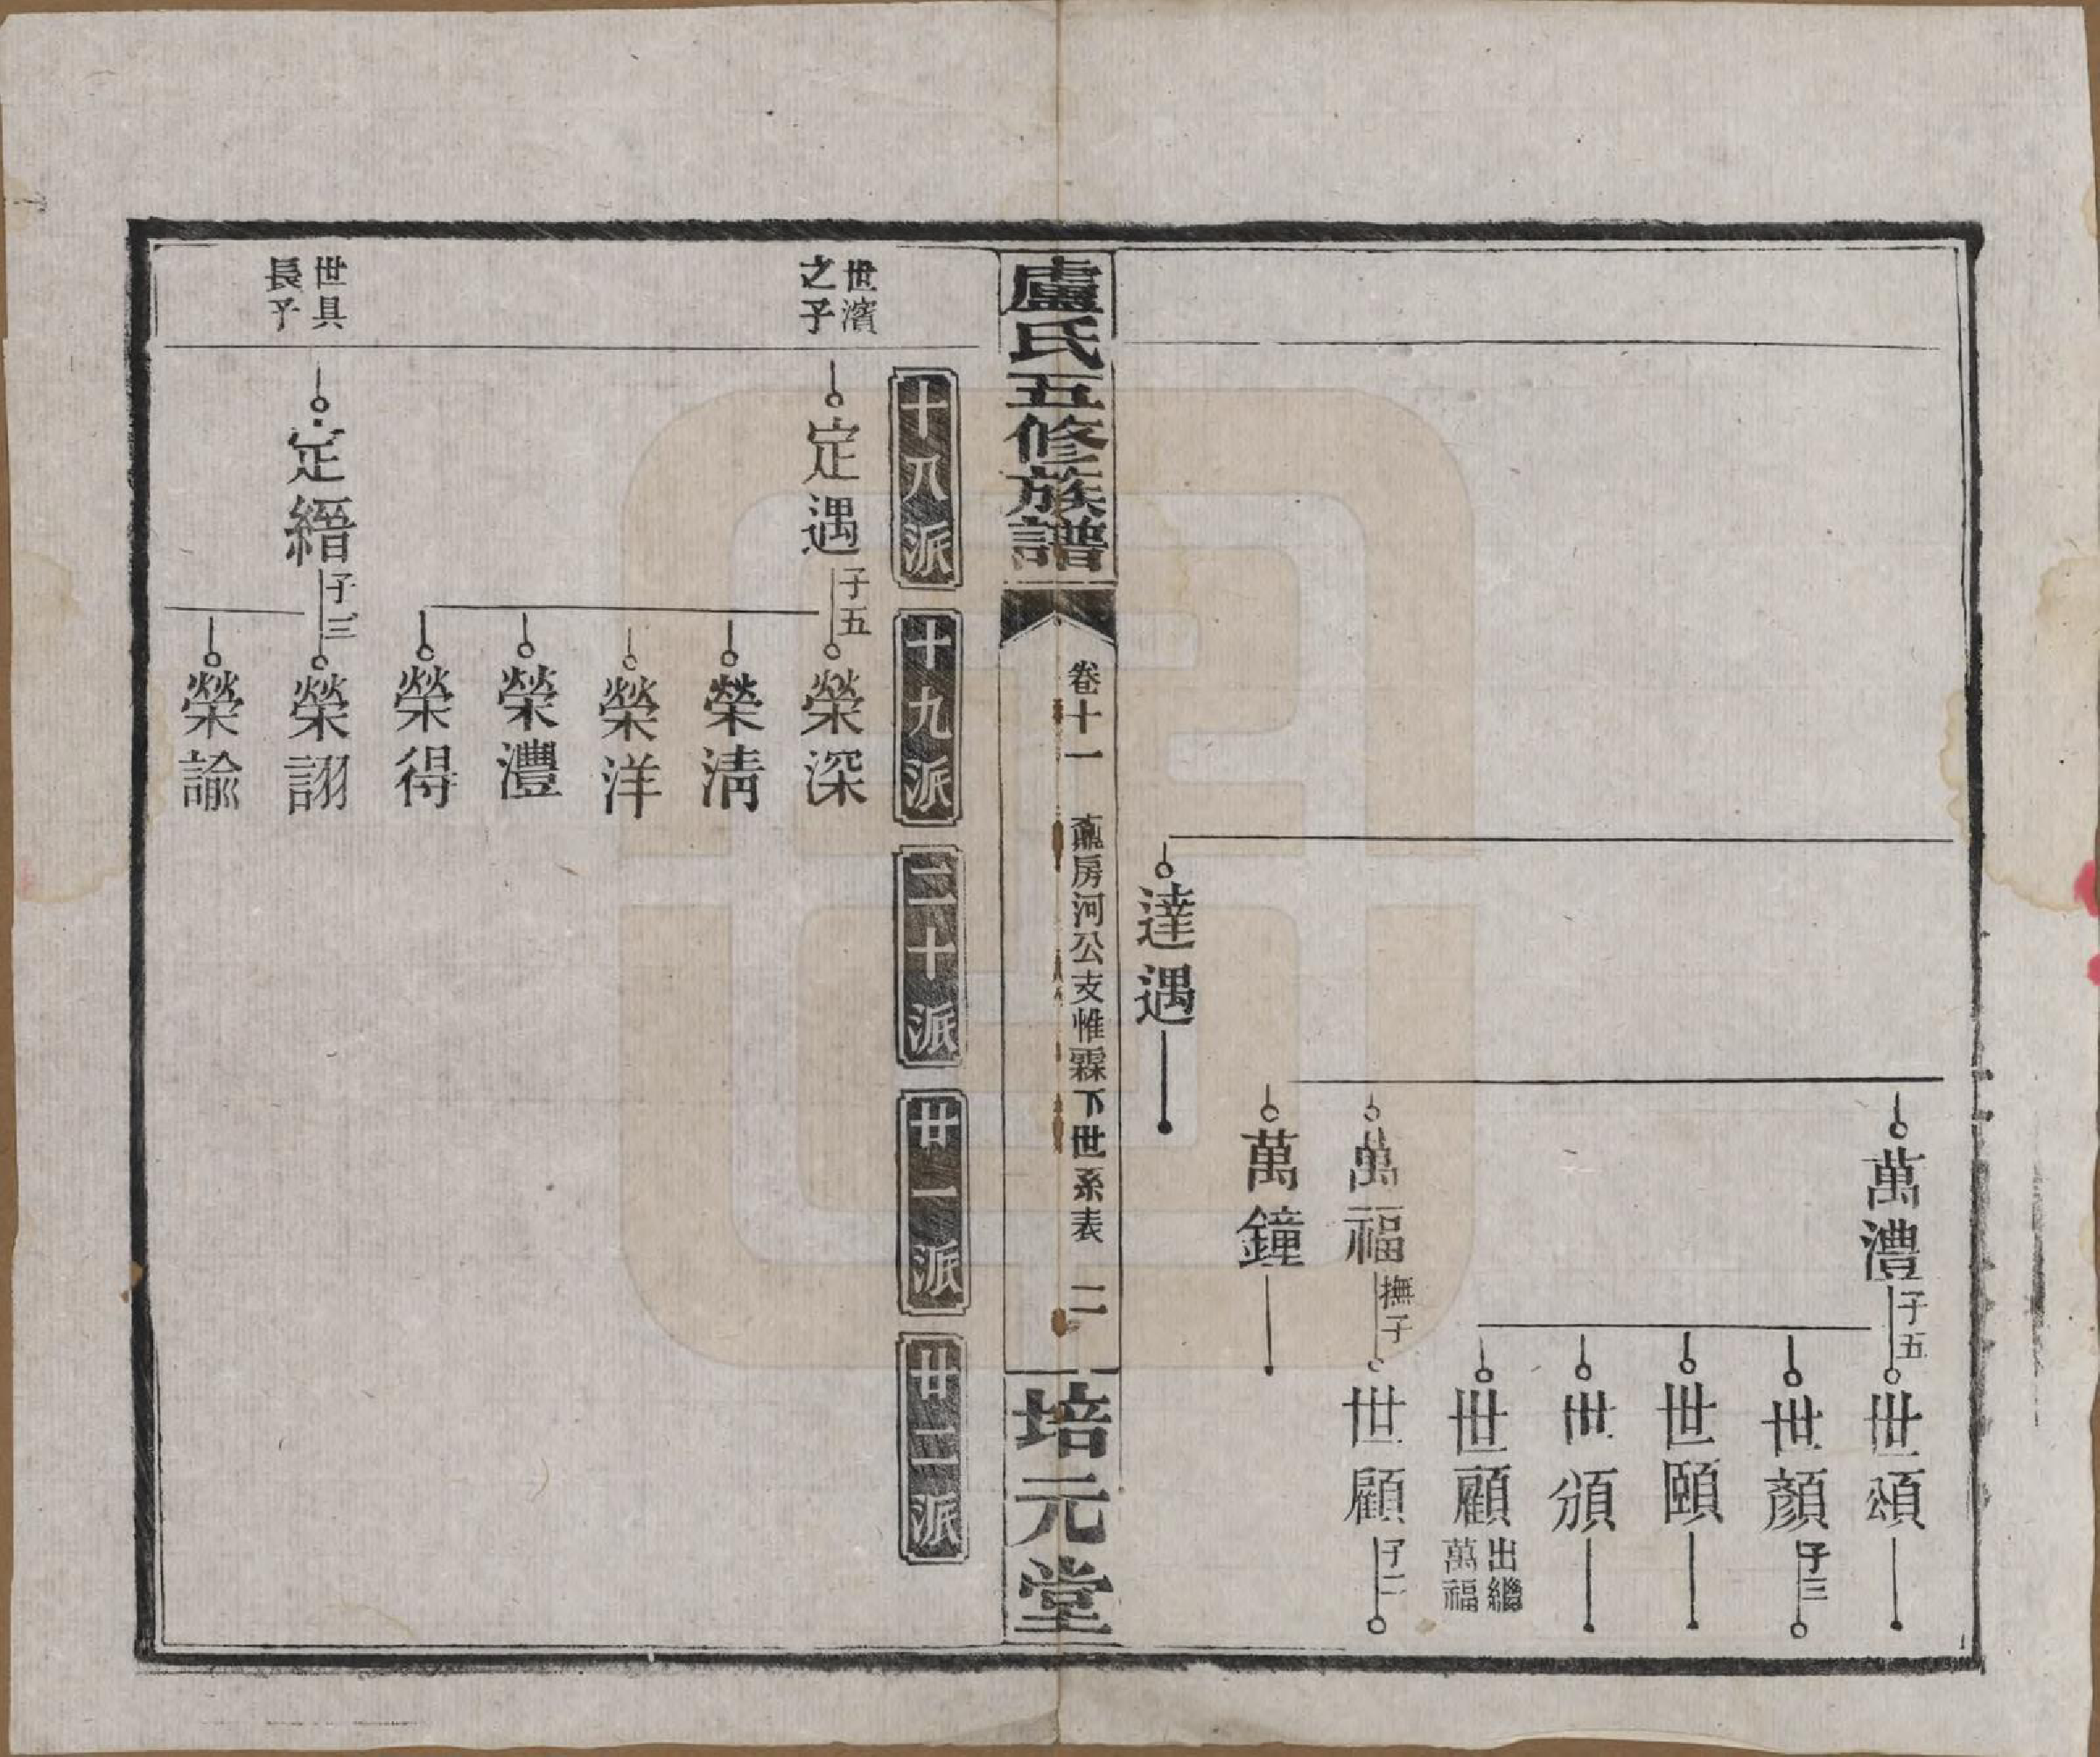 萬澧 子五
世頌
世顏 子三
世頤
世頒
世顧 出繼萬福
萬福 撫子
世顧 子二
萬鐘
達遇
盧氏五修族譜
卷十一
房河公支惟霖下世系表
二
培元堂
十八派
十九派
二十派
廿一派
廿二派
世濱之子
定遇 子五
榮深
榮清
榮洋
榮澧
榮得
世具長子
定縉 子三
榮詡
榮諭